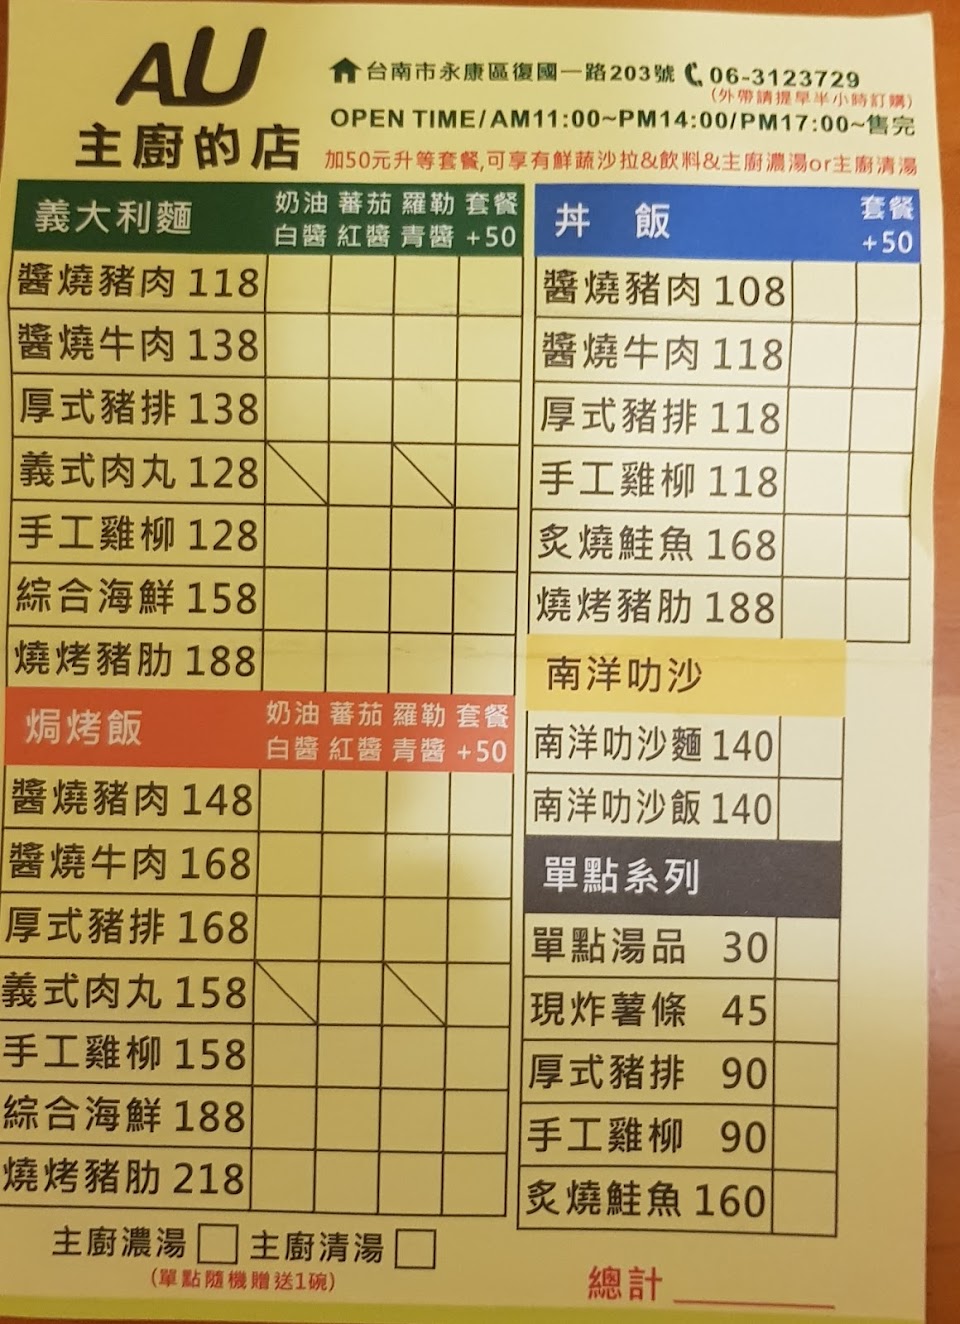 AU
主廚的店
台南市永康區復國一路203號 06-3123729
(外帶請提早半小時訂購)
OPEN TIME/AM11:00~PM14:00/PM17:00~售完
加50元升等套餐,可享有鮮蔬沙拉&飲料&主廚濃湯or主廚清湯
義大利麵 奶油白醬 蕃茄紅醬 羅勒青醬 套餐+50
醬燒豬肉 118
醬燒牛肉 138
厚式豬排 138
義式肉丸 128
手工雞柳 128
綜合海鮮 158
燒烤豬肋 188
焗烤飯 奶油白醬 蕃茄紅醬 羅勒青醬 套餐+50
醬燒豬肉 148
醬燒牛肉 168
厚式豬排 168
義式肉丸 158
手工雞柳 158
綜合海鮮 188
燒烤豬肋 218
主廚濃湯 主廚清湯
(單點隨機贈送1碗)
丼 飯 套餐+50
醬燒豬肉 108
醬燒牛肉 118
厚式豬排 118
手工雞柳 118
炙燒鮭魚 168
燒烤豬肋 188
南洋叻沙
南洋叻沙麵 140
南洋叻沙飯 140
單點系列
單點湯品 30
現炸薯條 45
厚式豬排 90
手工雞柳 90
炙燒鮭魚 160
總計